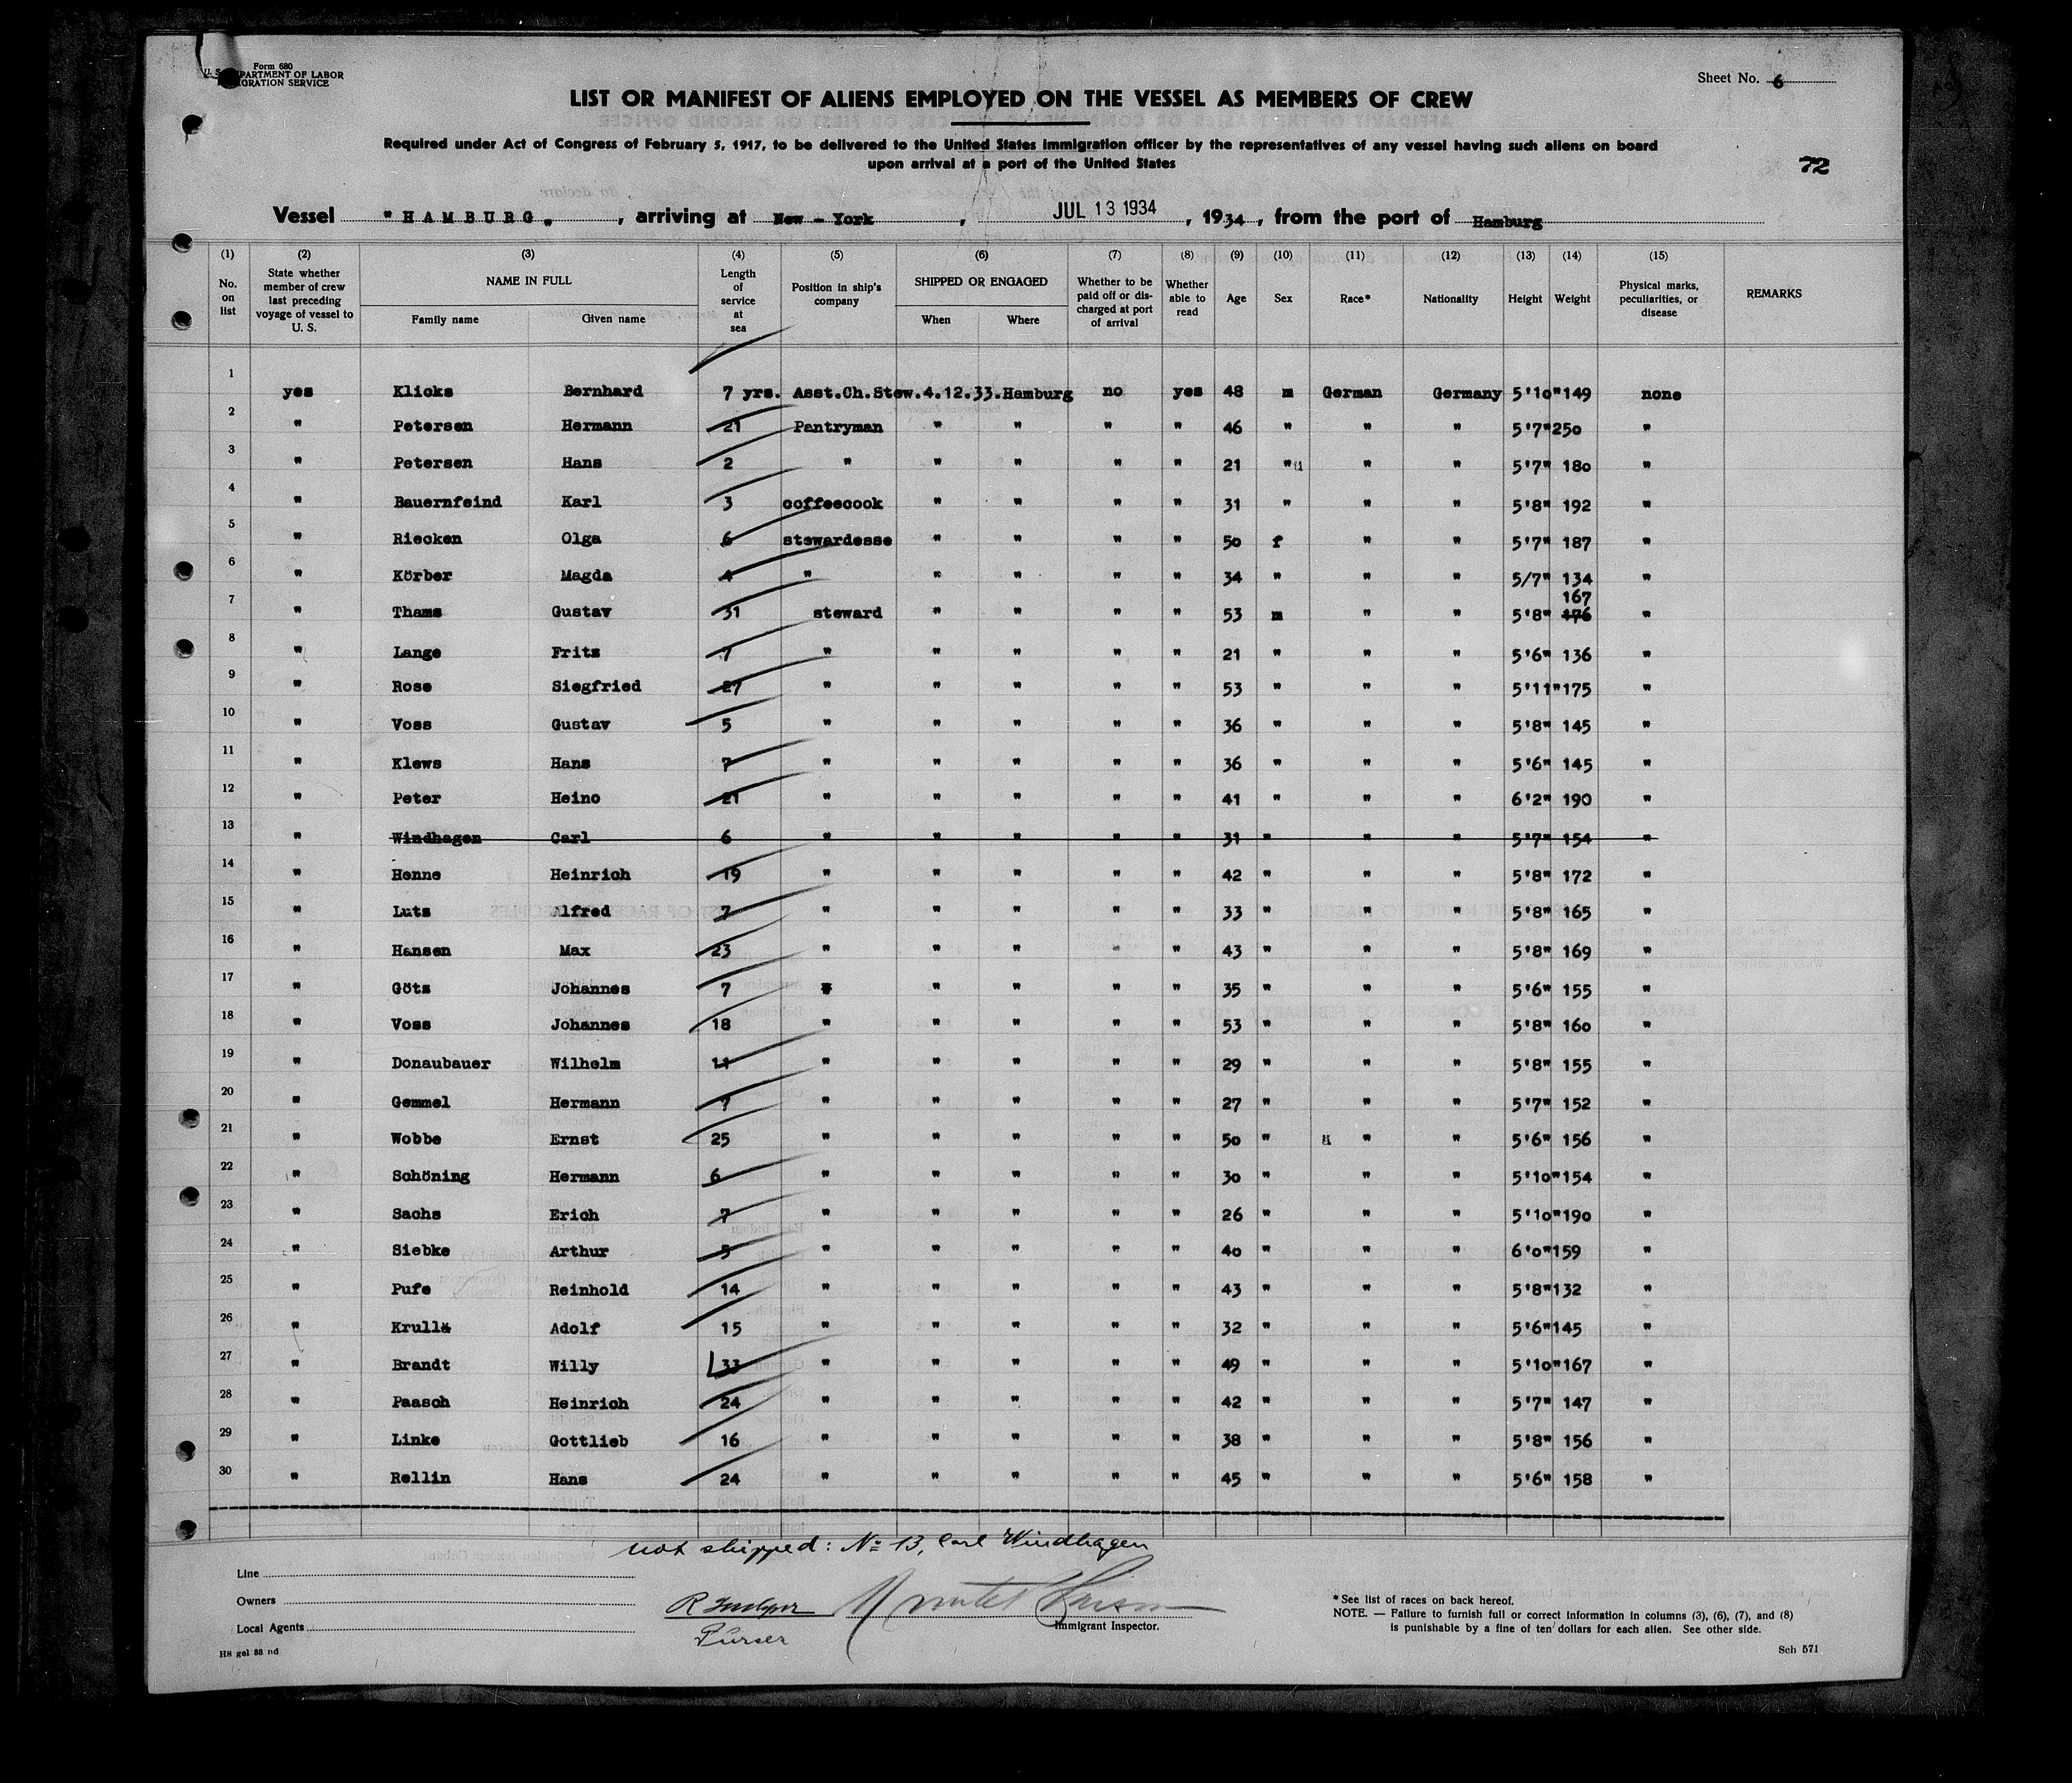 Form 680
U. S. DEPARTMENT OF LABOR
IMMIGRATION SERVICE
Sheet No. 6
LIST OR MANIFEST OF ALIENS EMPLOYED ON THE VESSEL AS MEMBERS OF CREW
Required under Act of Congress of February 5, 1917, to be delivered to the United States immigration officer by the representatives of any vessel having such aliens on board
upon arrival at a port of the United States
72
Vessel "HAMBURG", arriving at New - York, JUL 13 1934, 1934, from the port of Hamburg
(1) No. on list (2) State whether member of crew last preceding voyage of vessel to U. S. (3) NAME IN FULL Family name Given name (4) Length of service at sea (5) Position in ship's company (6) SHIPPED OR ENGAGED When Where (7) Whether to be paid off or discharged at port of arrival (8) Whether able to read (9) Age (10) Sex (11) Race* (12) Nationality (13) Height (14) Weight (15) Physical marks, peculiarities, or disease REMARKS
1 yes Klicks Bernhard 7 yrs. Asst.Ch.Stew. 4.12.33. Hamburg no yes 48 m German Germany 5'10" 149 none
2 " Petersen Hermann 21 Pantryman " " " " 46 " " " 5'7" 250 "
3 " Petersen Hans 2 " " " " " 21 " " " 5'7" 180 "
4 " Bauernfeind Karl 3 coffeecook " " " " 31 " " " 5'8" 192 "
5 " Riecken Olga 6 stewardesse " " " " 50 f " " 5'7" 187 "
6 " Körber Magda 4 " " " " " 34 " " " 5/7" 134 "
7 " Thams Gustav 31 steward " " " " 53 m " " 5'8" 176 167 "
8 " Lange Fritz 7 " " " " " 21 " " " 5'6" 136 "
9 " Rose Siegfried 27 " " " " " 53 " " " 5'11" 175 "
10 " Voss Gustav 5 " " " " " 36 " " " 5'8" 145 "
11 " Klews Hans 7 " " " " " 36 " " " 5'6" 145 "
12 " Peter Heino 21 " " " " " 41 " " " 6'2" 190 "
13 " Windhagen Carl 6 " " " " " 31 " " " 5'7" 154 "
14 " Henne Heinrich 19 " " " " " 42 " " " 5'8" 172 "
15 " Lutz Alfred 7 " " " " " 33 " " " 5'8" 165 "
16 " Hansen Max 23 " " " " " 43 " " " 5'8" 169 "
17 " Götz Johannes 7 " " " " " 35 " " " 5'6" 155 "
18 " Voss Johannes 18 " " " " " 53 " " " 5'8" 160 "
19 " Donaubauer Wilhelm 11 " " " " " 29 " " " 5'8" 155 "
20 " Gemmel Hermann 7 " " " " " 27 " " " 5'7" 152 "
21 " Wobbe Ernst 25 " " " " " 50 " " " 5'6" 156 "
22 " Schöning Hermann 6 " " " " " 30 " " " 5'10" 154 "
23 " Sachs Erich 7 " " " " " 26 " " " 5'10" 190 "
24 " Siebke Arthur 5 " " " " " 40 " " " 6'0" 159 "
25 " Pufe Reinhold 14 " " " " " 43 " " " 5'8" 132 "
26 " Krull Adolf 15 " " " " " 32 " " " 5'6" 145 "
27 " Brandt Willy 33 " " " " " 49 " " " 5'10" 167 "
28 " Paasch Heinrich 24 " " " " " 42 " " " 5'7" 147 "
29 " Linke Gottlieb 16 " " " " " 38 " " " 5'8" 156 "
30 " Rellin Hans 24 " " " " " 45 " " " 5'6" 158 "
not shipped: No 13, Carl Windhagen
Line
Owners
Local Agents
Purser
Immigrant Inspector.
* See list of races on back hereof.
NOTE. — Failure to furnish full or correct information in columns (3), (6), (7), and (8)
is punishable by a fine of ten dollars for each alien. See other side.
H8 gel 38 nd
Sch 571